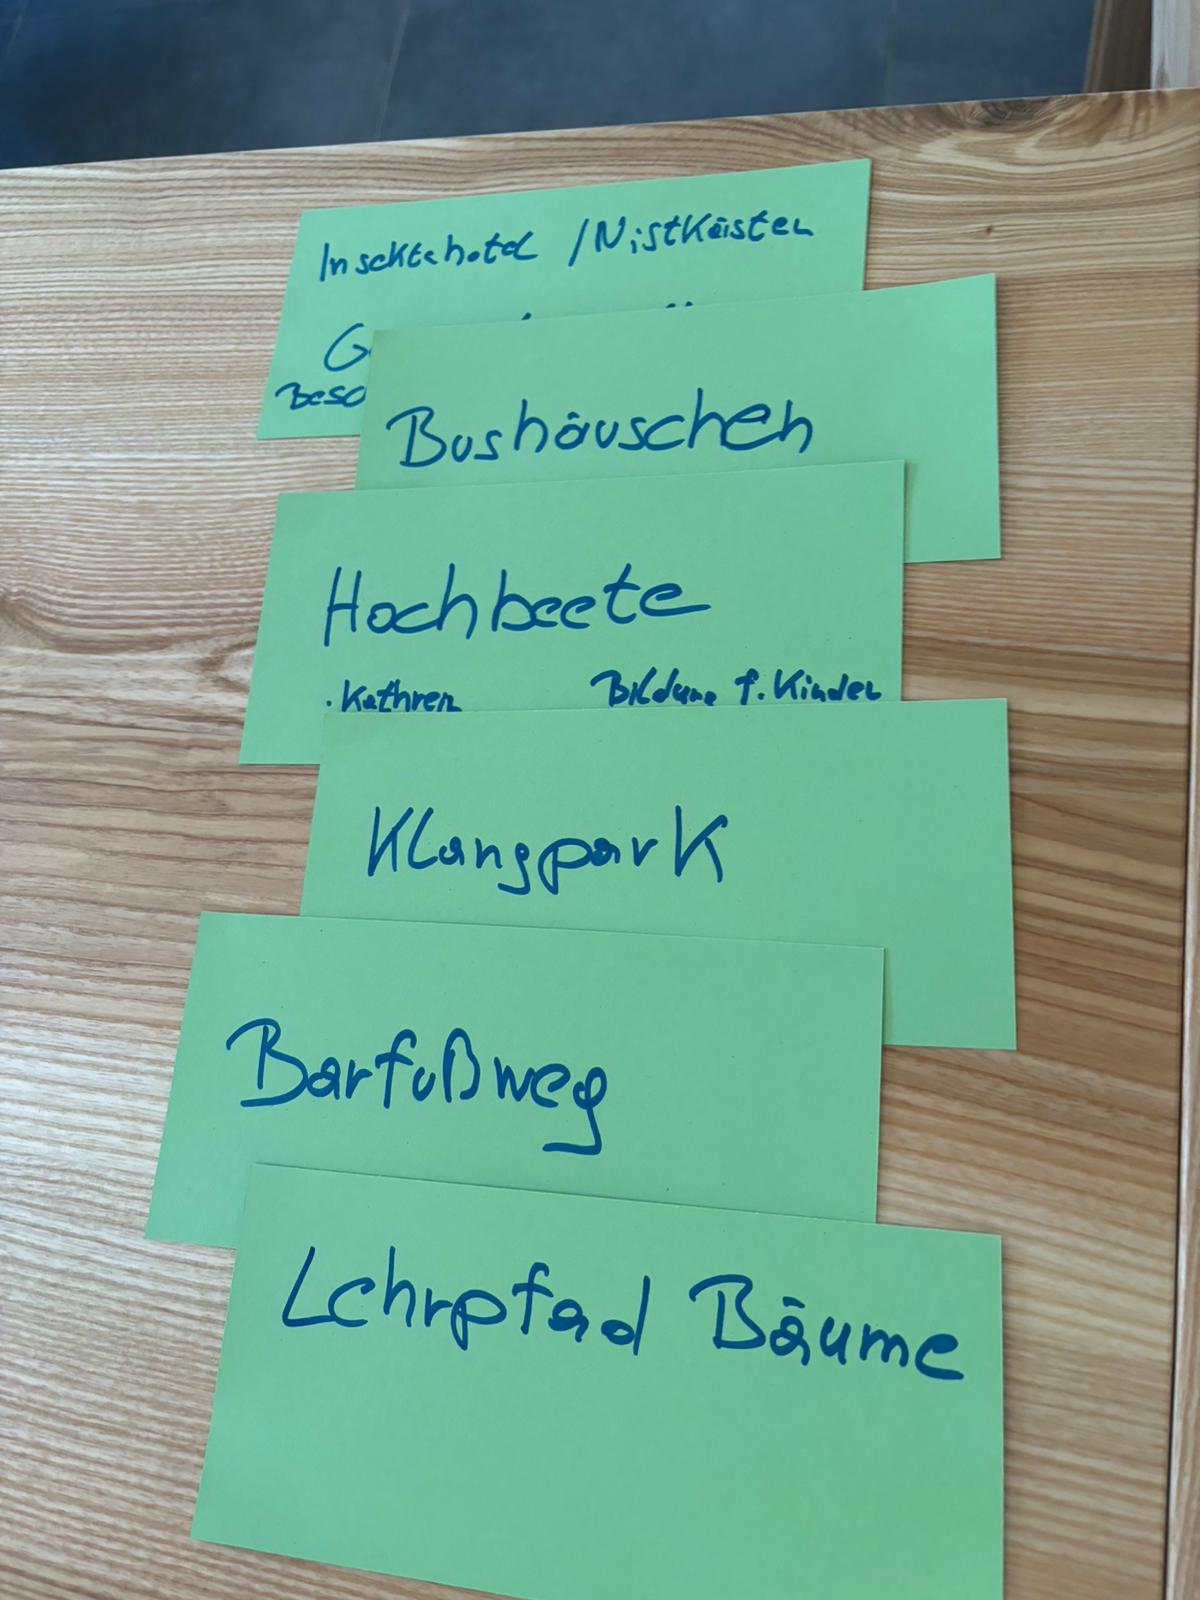 Insektehotel / Nistkästen
Bushäuschen
Hochbeete
· Kathren Bildung f. Kinder
Klangpark
Barfußweg
Lehrpfad Bäume